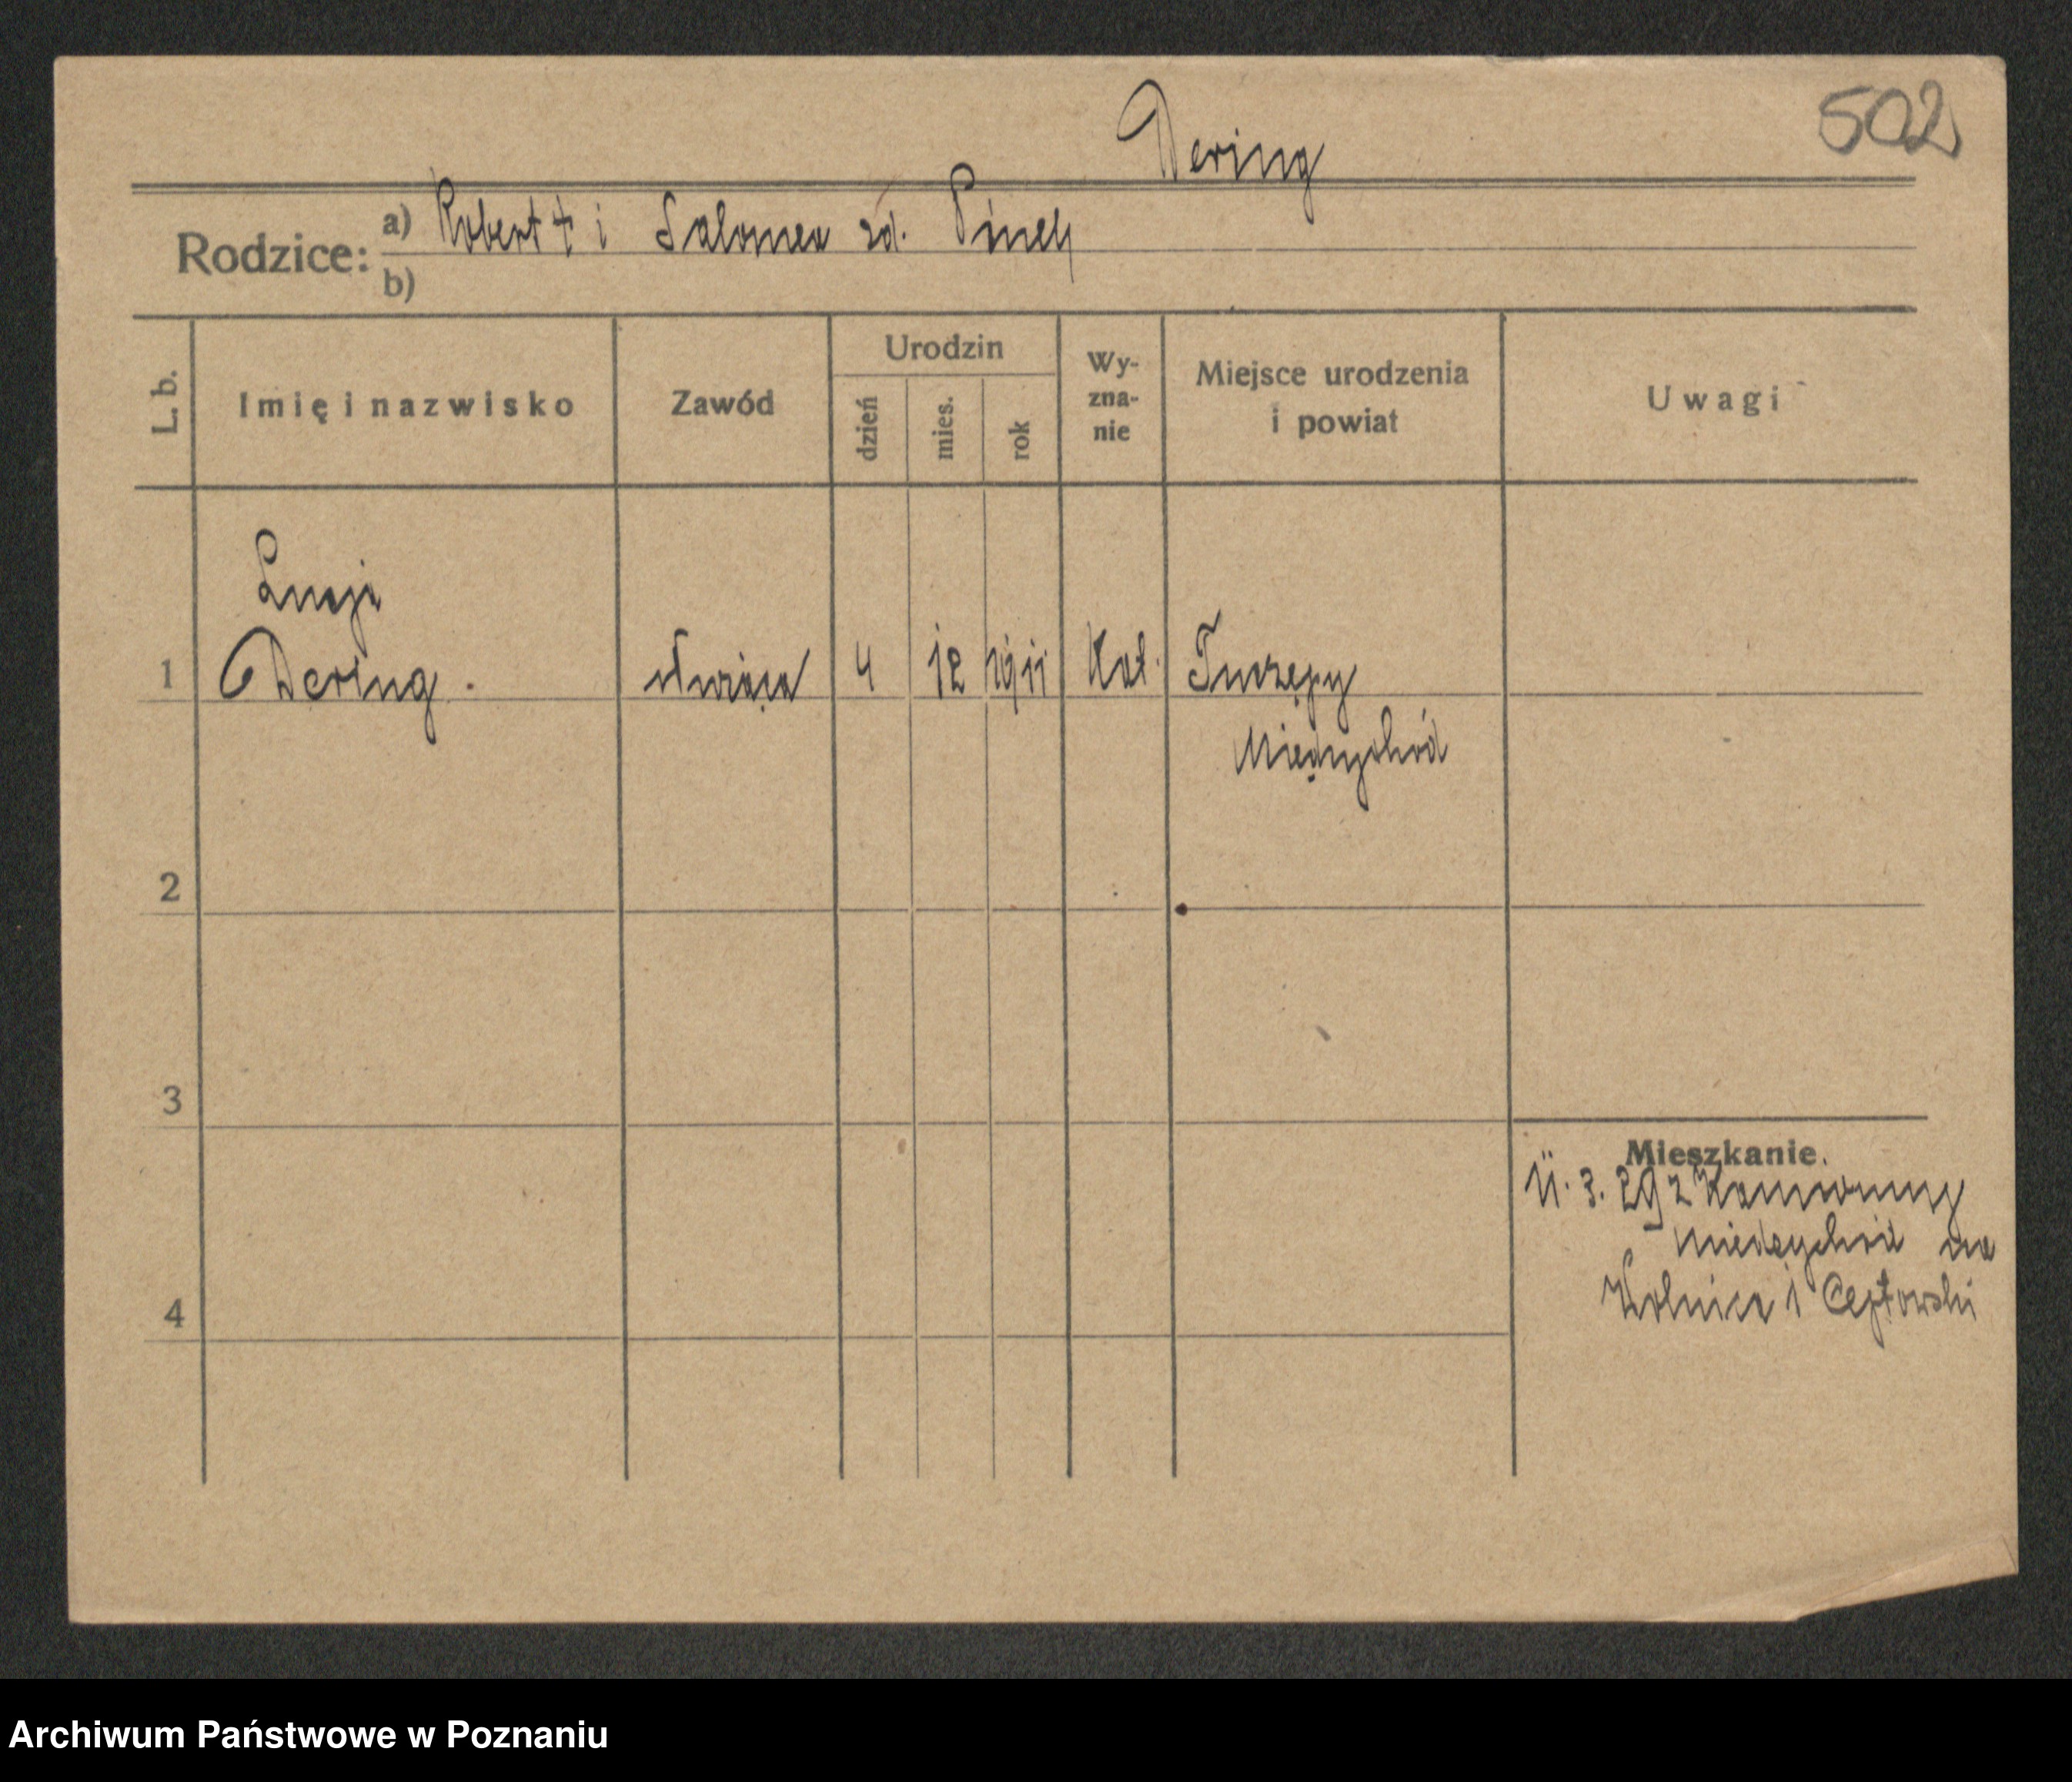 502
Dering
Rodzice: a) Robert + i Salomea zd.
b)
L. b.
Imię i nazwisko
Zawód
Urodzin
dzień
mies.
rok
Wy-
zna-
nie
Miejsce urodzenia
i powiat
Uwagi
Lucja
1 Dering. służąca 4 12 1911 Kat.
Międzychód
2
3
4
Mieszkanie.
11. 3. 29 z
Międzychód na
i Ceptowski
Archiwum Państwowe w Poznaniu